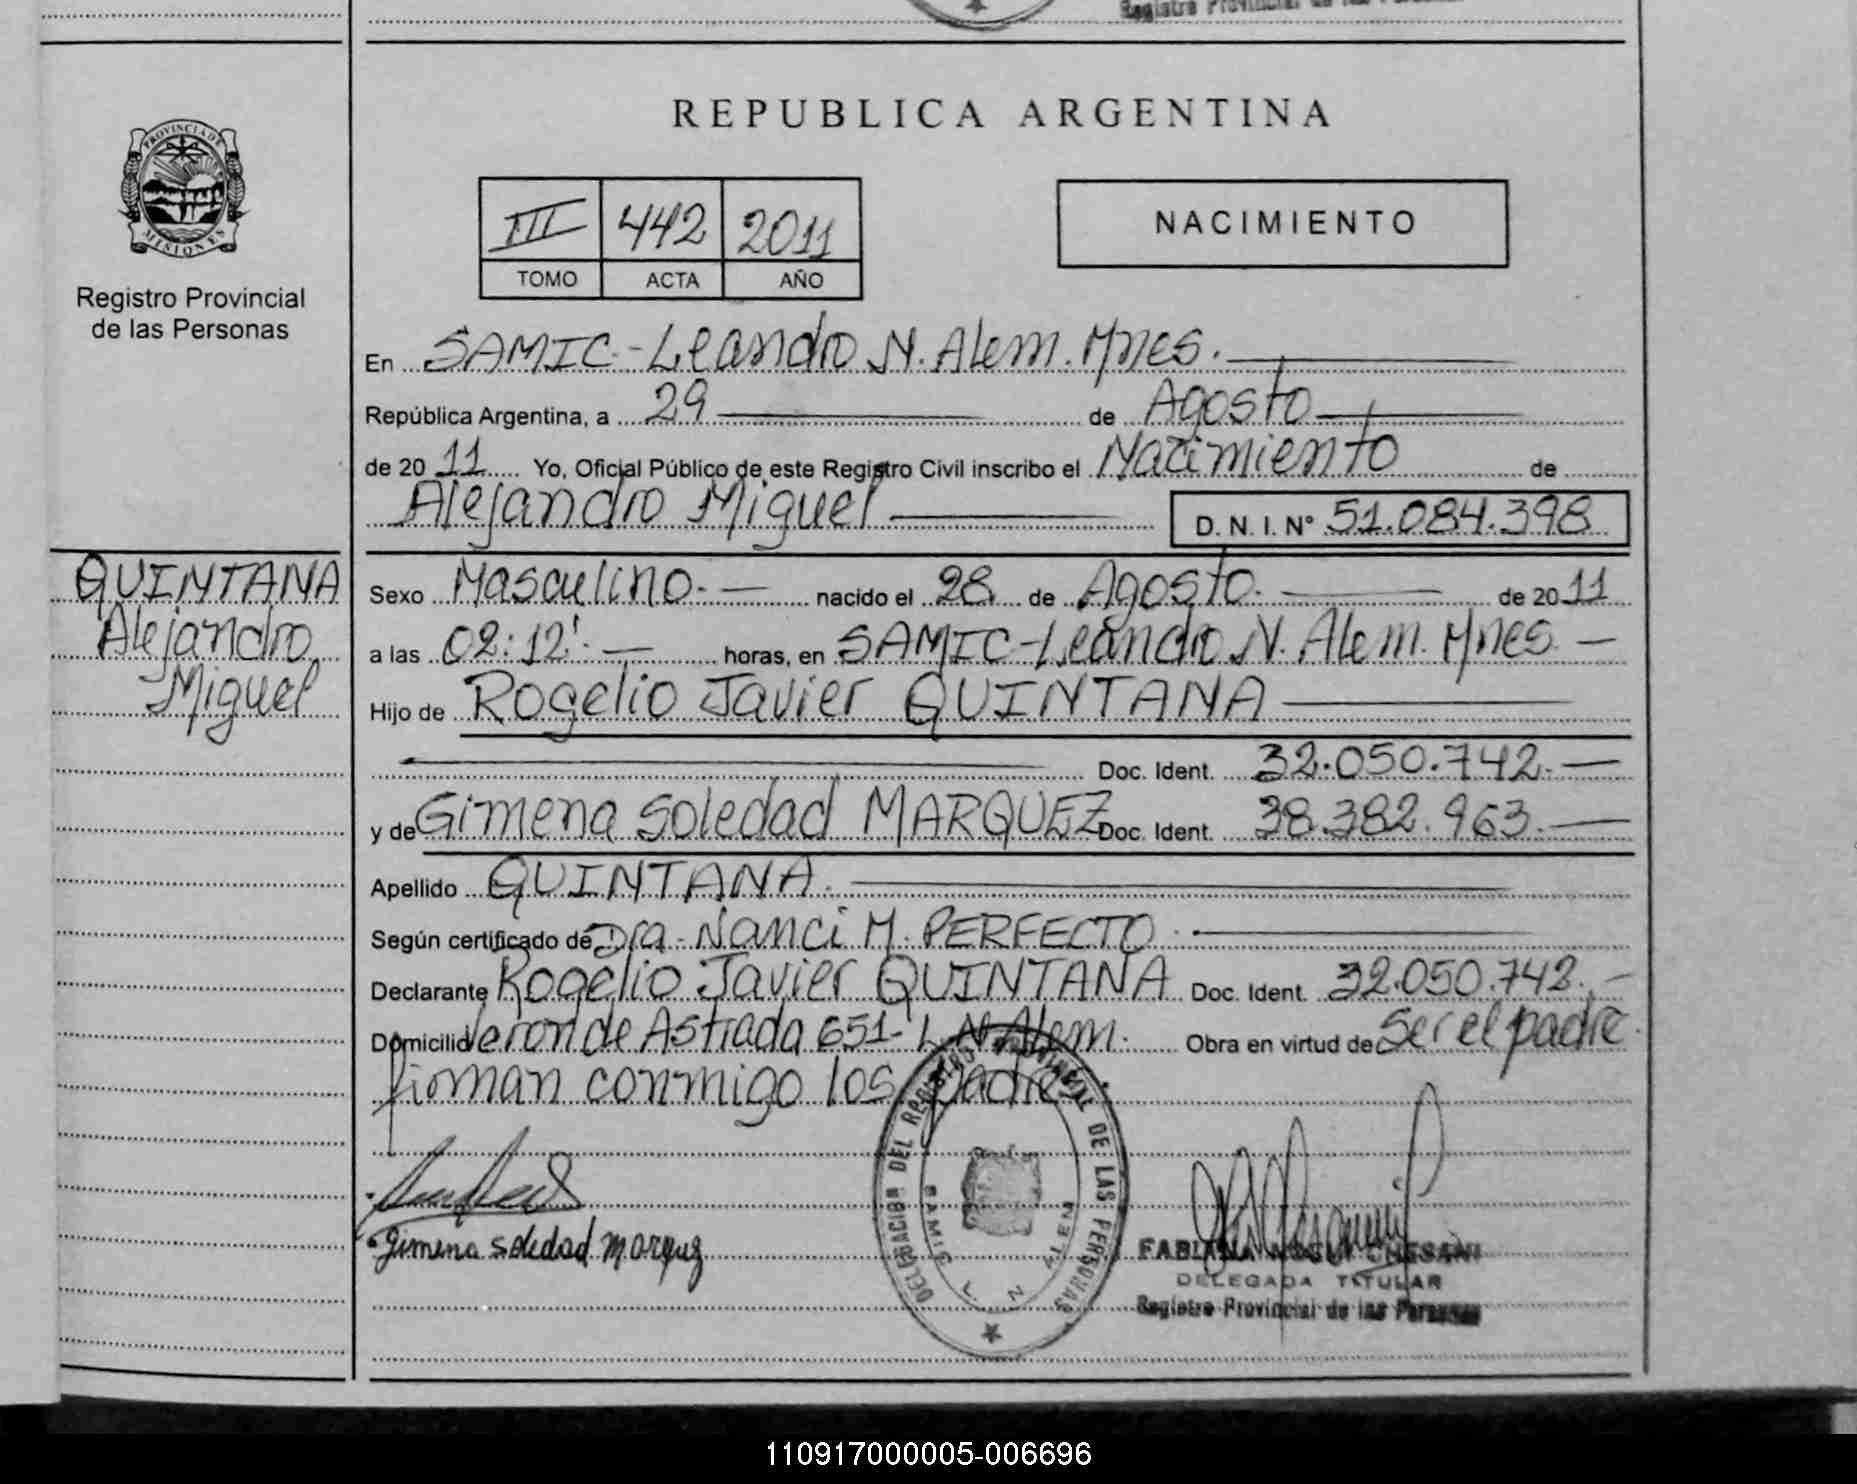 Registro Provincial de las Personas
PROVINCIA DE
MISIONES
Registro Provincial
de las Personas
QUINTANA
Alejandro
Miguel
REPUBLICA ARGENTINA
III 442 2011
TOMO ACTA AÑO
NACIMIENTO
En SAMIC.-Leandro N. Alem. Mnes.
República Argentina, a 29 de Agosto
de 20 11 Yo, Oficial Público de este Registro Civil inscribo el Nacimiento de
Alejandro Miguel D. N. I. N° 51.084.398
Sexo Masculino.- nacido el 28 de Agosto. de 20 11
a las 02:12'. horas, en SAMIC-Leandro N. Alem. Mnes. -
Hijo de Rogelio Javier QUINTANA
Doc. Ident. 32.050.742.-
y de Gimena Soledad MARQUEZ Doc. Ident. 38.382.963.-
Apellido QUINTANA.
Según certificado de Dra. Nanci M. PERFECTO.
Declarante Rogelio Javier QUINTANA Doc. Ident. 32.050.742.-
Domicilio Veron de Astrada 651- L.N.Alem. Obra en virtud de Ser el padre.
firman conmigo los padres.
DELEGACION DEL REGISTRO PROVINCIAL DE LAS PERSONAS
SAMIC L. N. ALEM
Gimena soledad marquez
DELEGADA TITULAR
Registro Provincial de las Personas
110917000005-006696